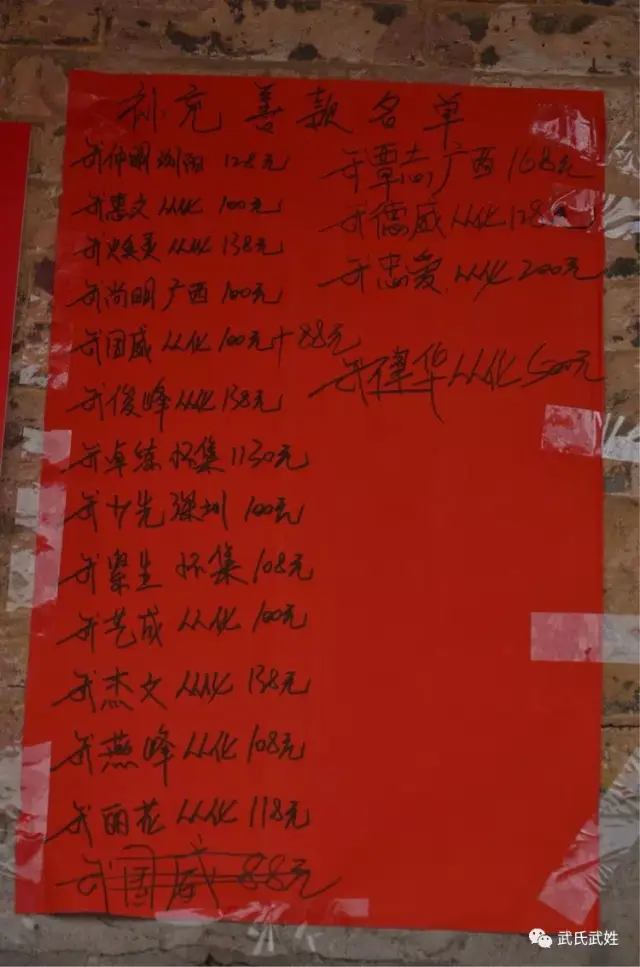 补充善款名单
武仲明 浏阳 128元
武惠文 从化 100元
武焕灵 从化 138元
武尚明 广西 100元
武国威 从化 100元+88元
武俊峰 从化 138元
武卓练 怀集 1130元
武少先 深圳 100元
武紧生 怀集 108元
武艺成 从化 100元
武杰文 从化 138元
武燕峰 从化 108元
武丽花 从化 118元
武国威 88元
武覃志 广西 168元
武德威 从化 128元
武忠爱 从化 200元
武华 从化 500元
武氏武姓